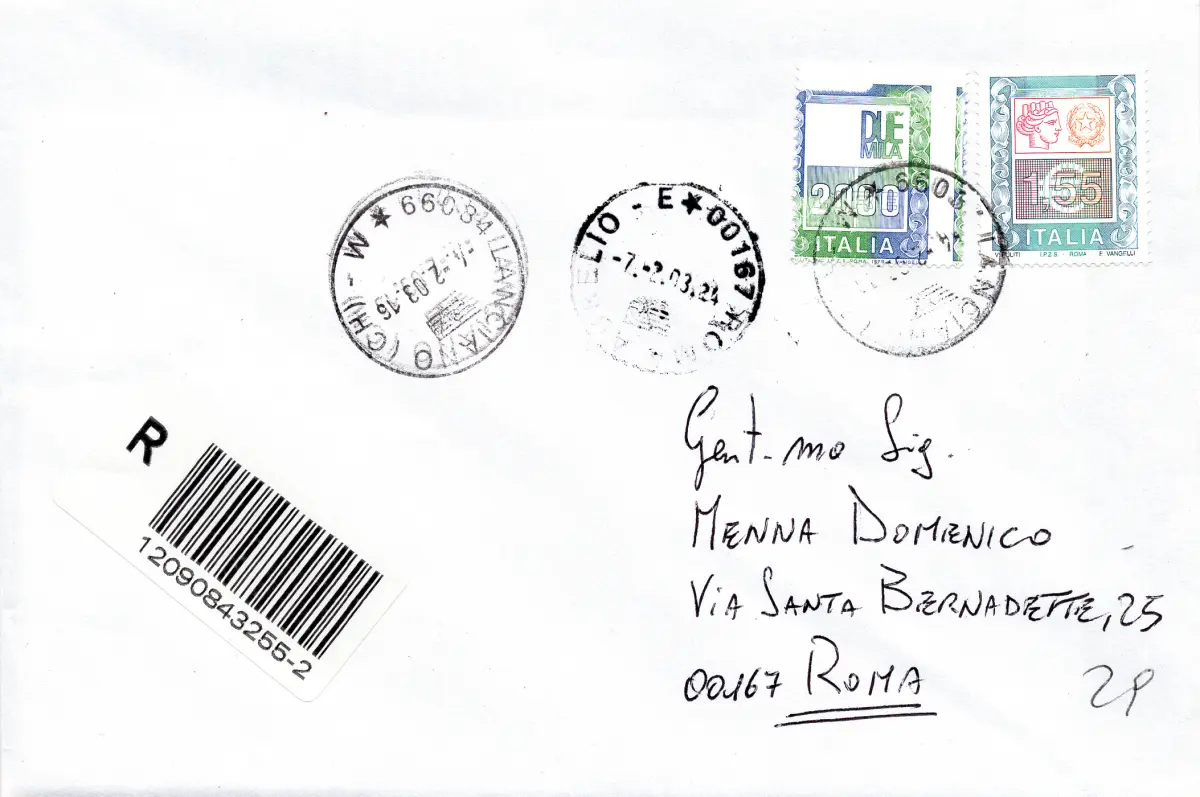 DUE
MILA
2000
ITALIA
1,55
ITALIA
I.P.Z.S. - ROMA E. VANGELLI
66034 LANCIANO (CH) - M
-4.-2.03.16
- E 00167 RO
-7.-2.03.24
R
12090843255-2
Gent.mo Sig.
MENNA DOMENICO
VIA SANTA BERNADETTE, 25
00167 ROMA
29